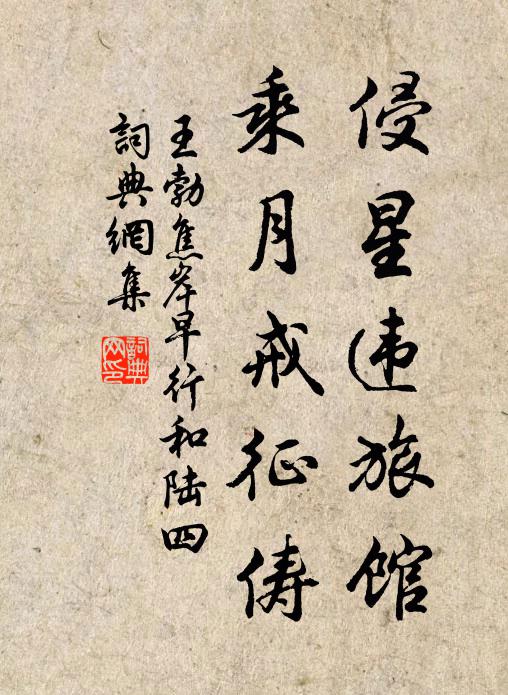 侵星违旅馆
乘月戒征俦
王勃焦岸早行和陆四
詞典網集
詞典网印